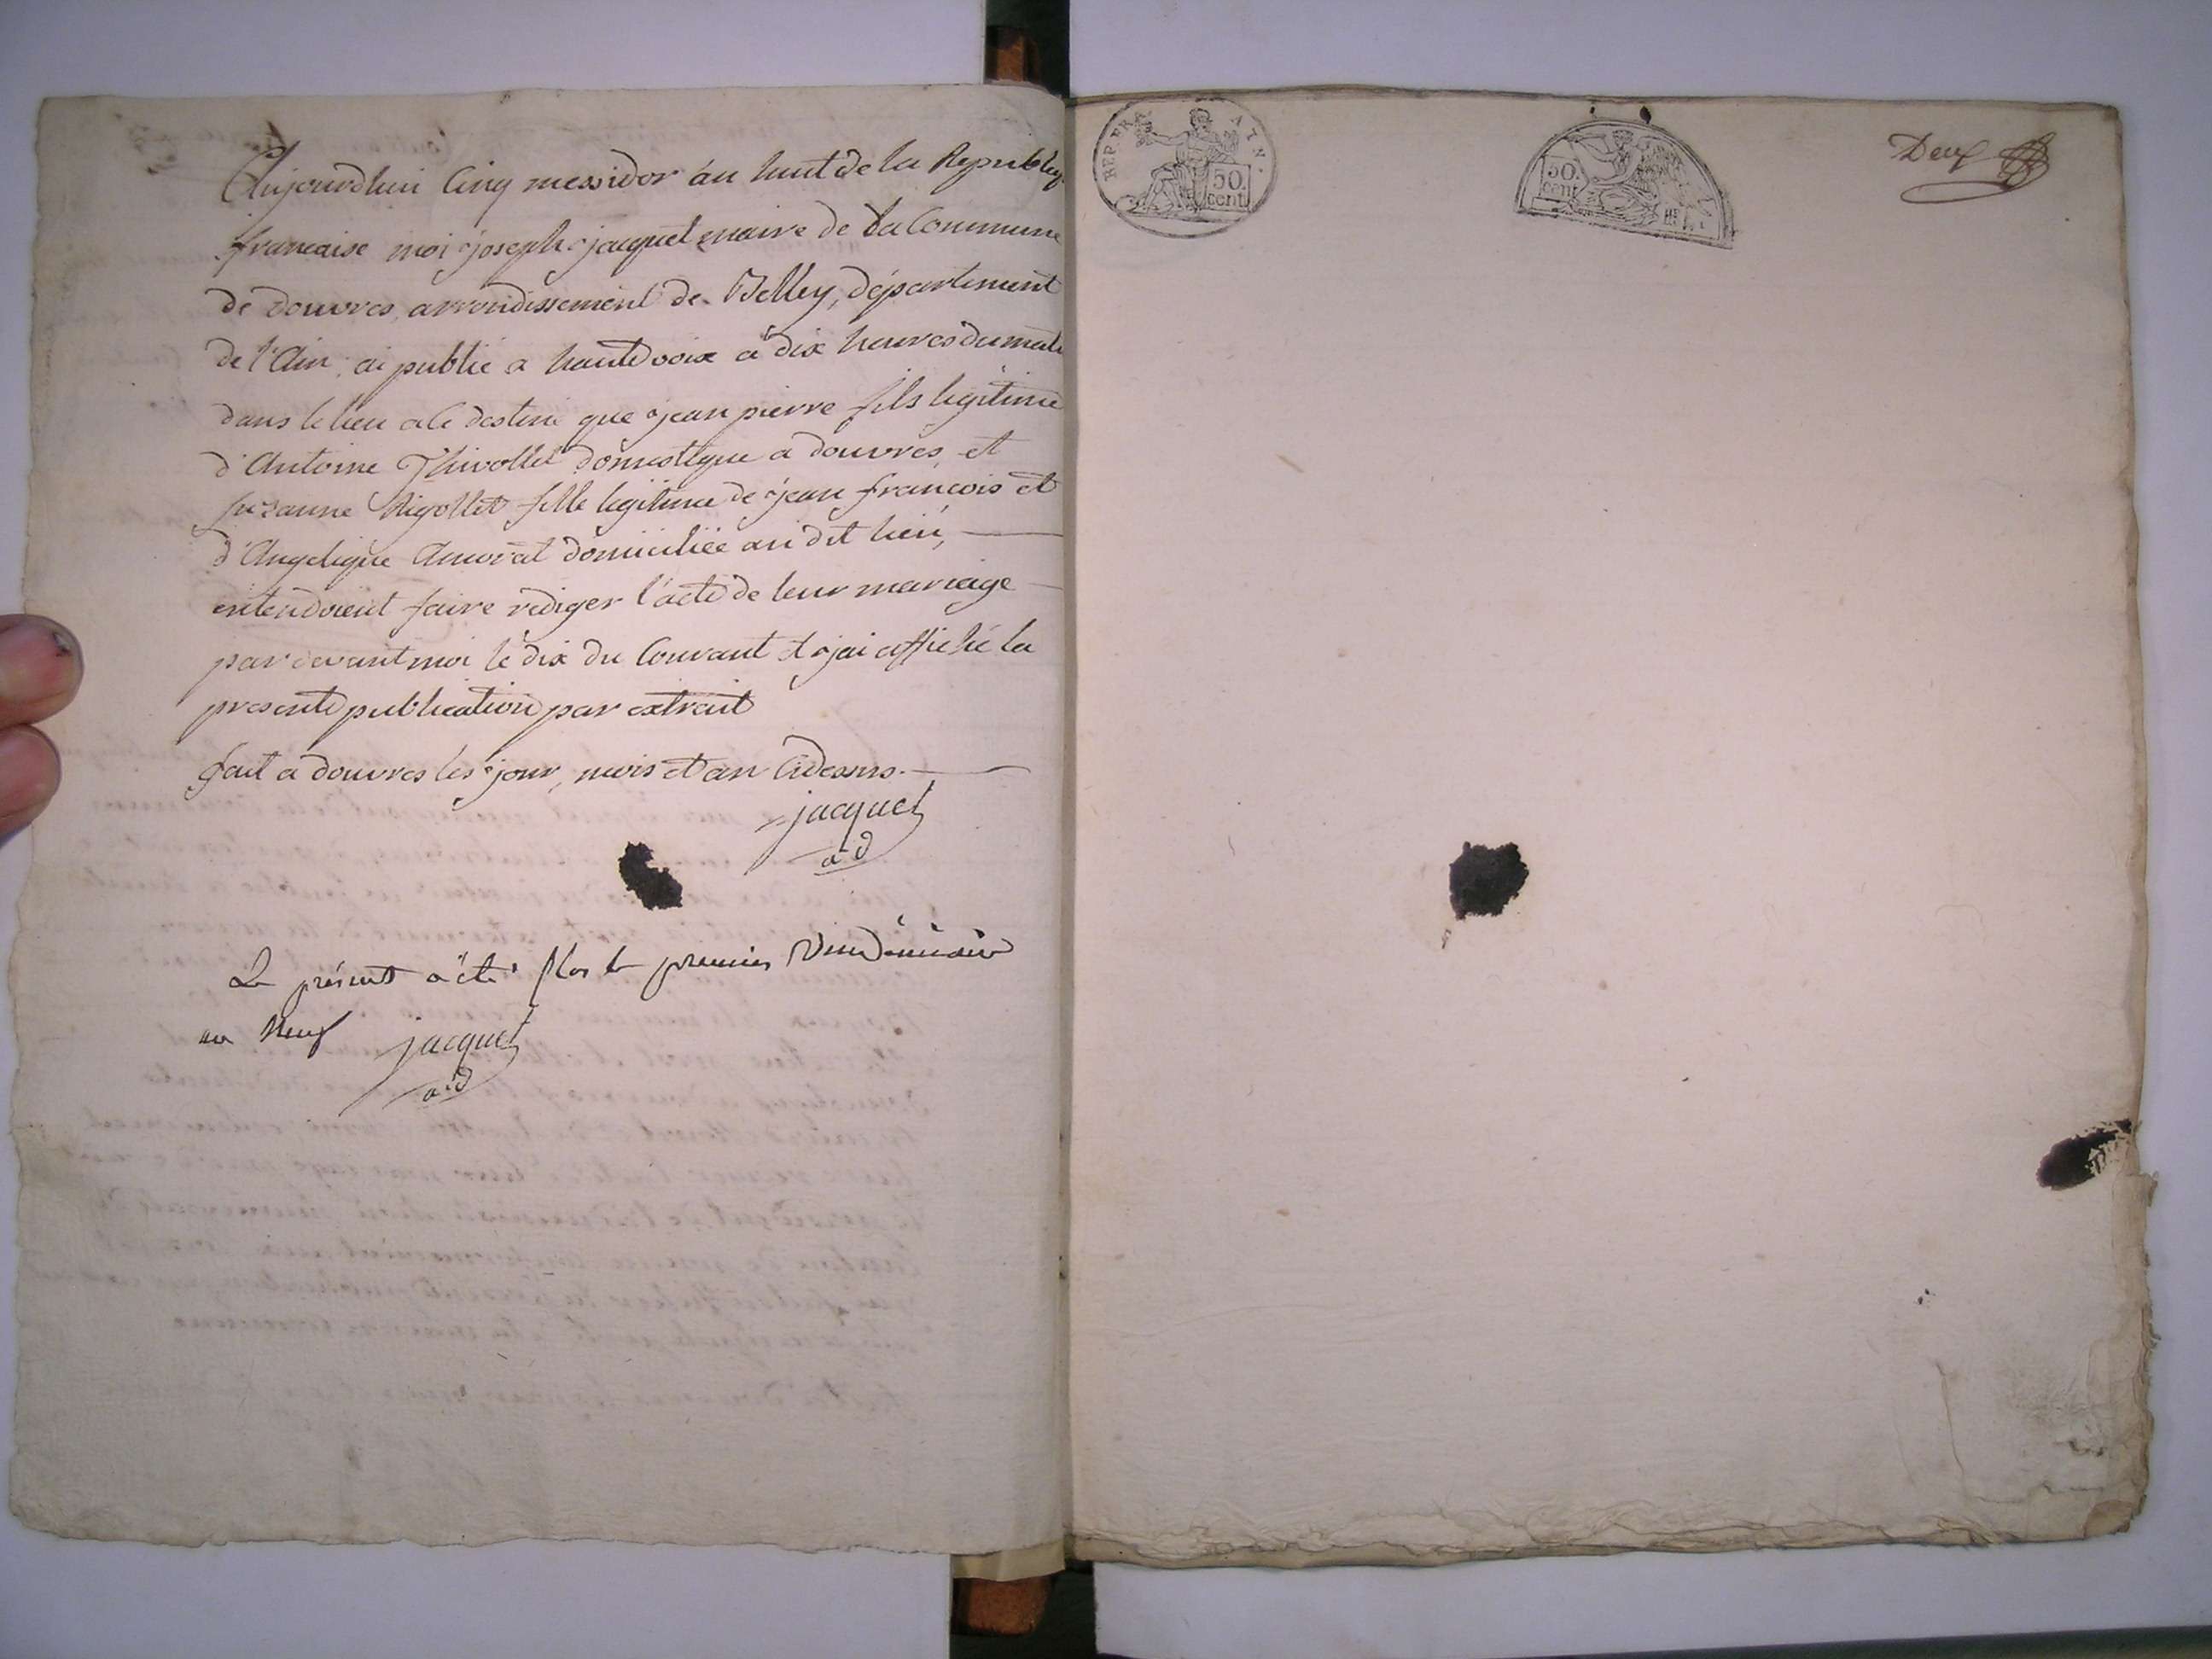 Aujourdhui Cinq messidor an huit de la Republiq
francaise moi joseph jacquet maire de la Commune
de douvres, arrondissement de Belley, département
de l'Ain, ai publié a haute voix a dix heures du mati
dans le lieu a ce destiné que jean pierre fils légitime
d'Antoine Thivollet domestique a douvres, et
suzanne Rigollet fille legitime de jean francois et
d'Angelique domiciliée au dit lieu,
entendoient faire rediger l'acte de leur mariage
par devant moi le dix du Courant et jai affiché la
presente publication par extrait
fait a douvres les jour, mois et an Cidessus.
jacquet
ad
Le présent a été Clos le premier Vendemiaire
an Neuf jacquet
ad
REP FRA
50.
cent
50.
cent
Deux